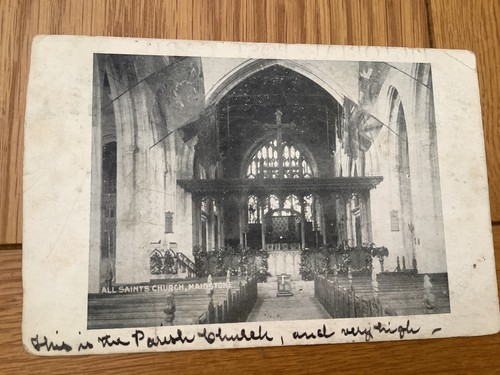 ALL SAINTS CHURCH, MAIDSTONE.
This is the Parish Church, and very high -